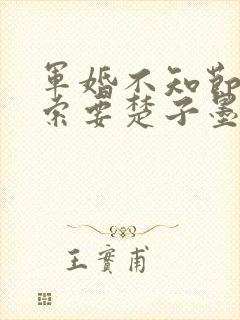 軍婚不知節
索要楚子墨
王實甫